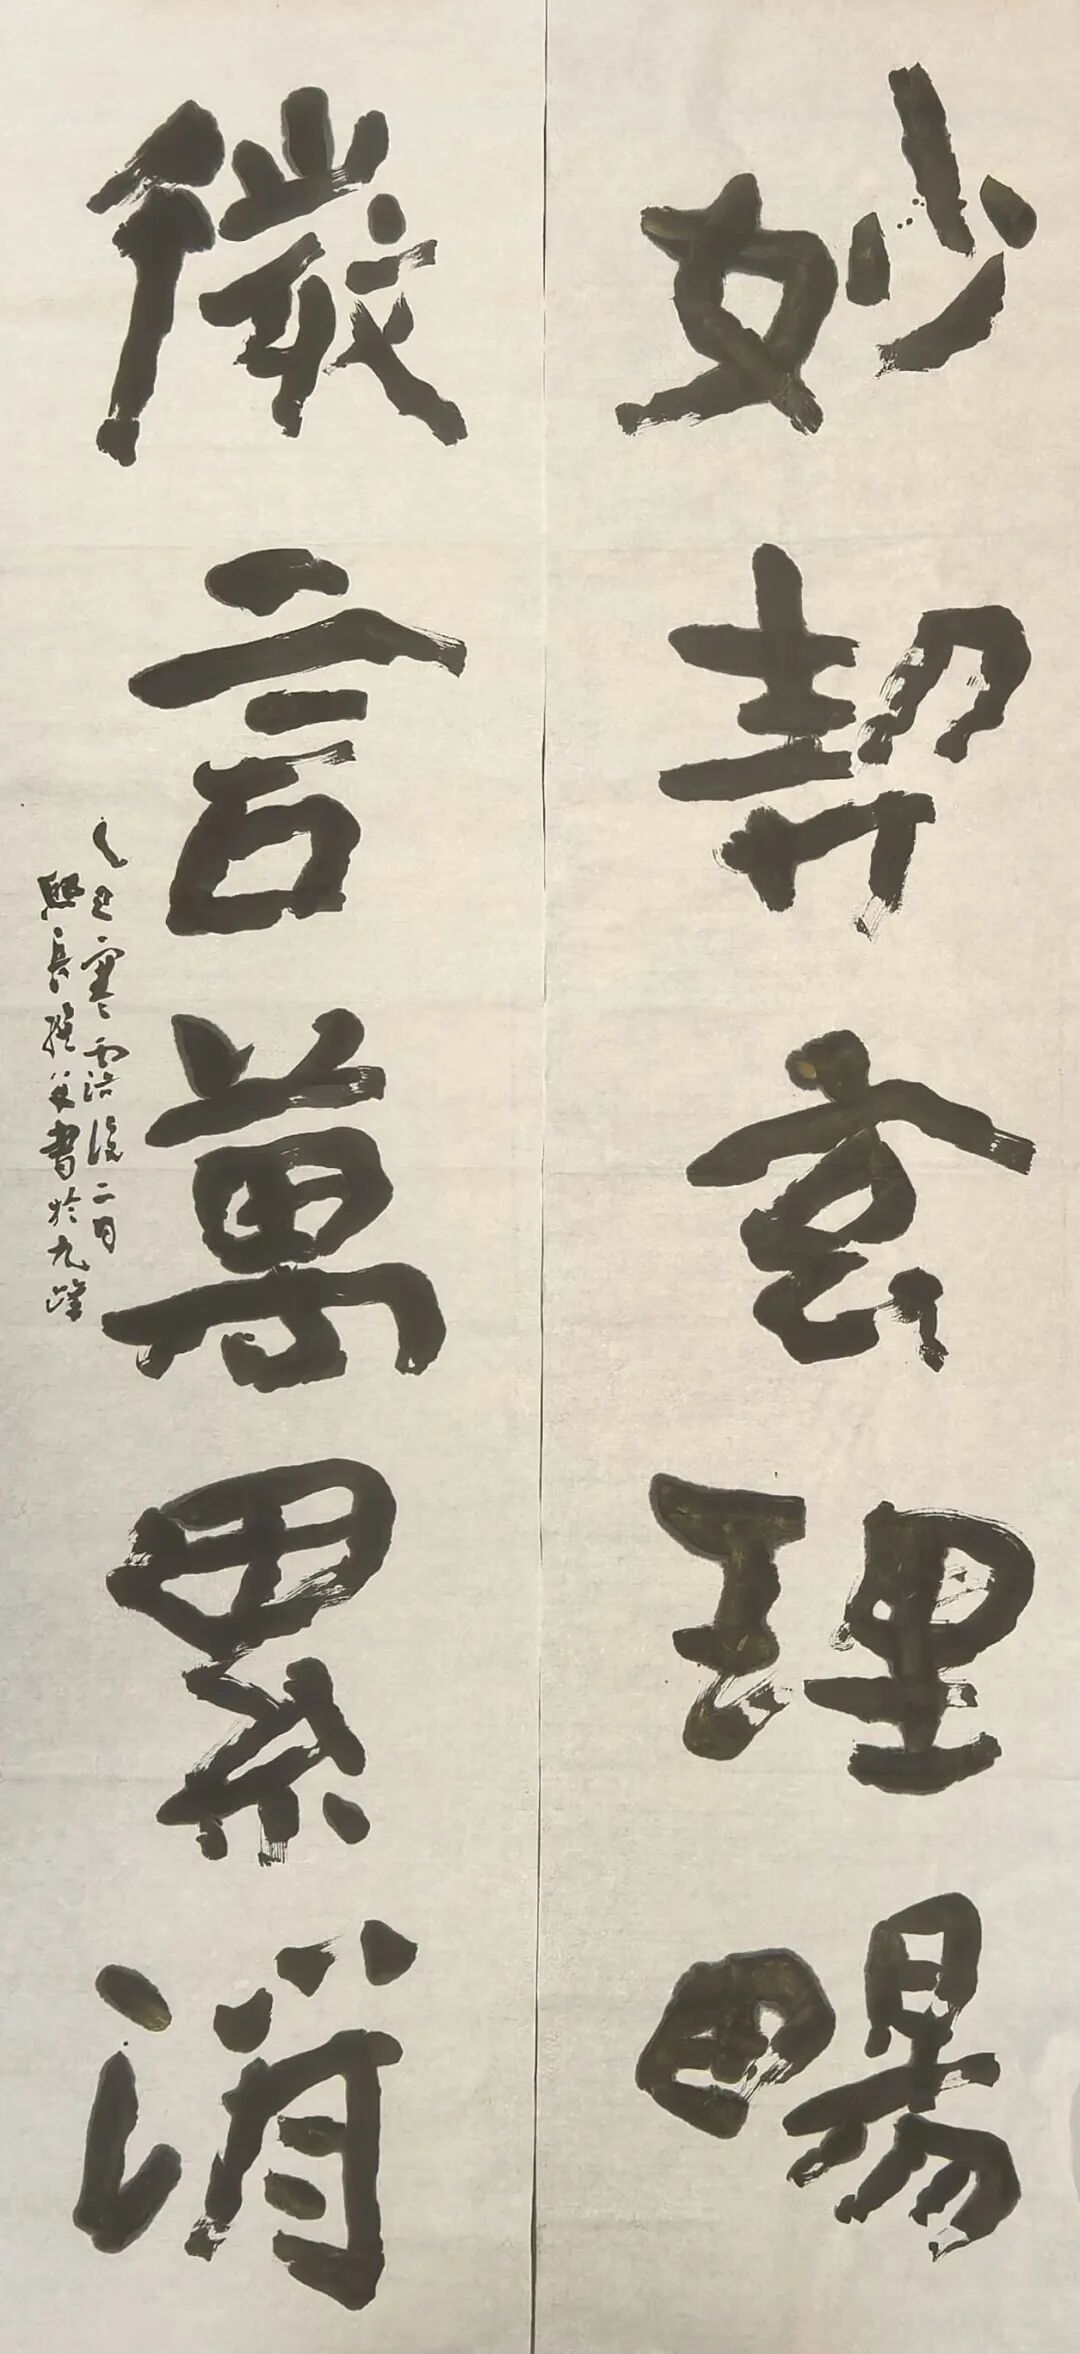 妙契玄理畼
微言萬累消
乙寒露後二日
熙長書於九峰